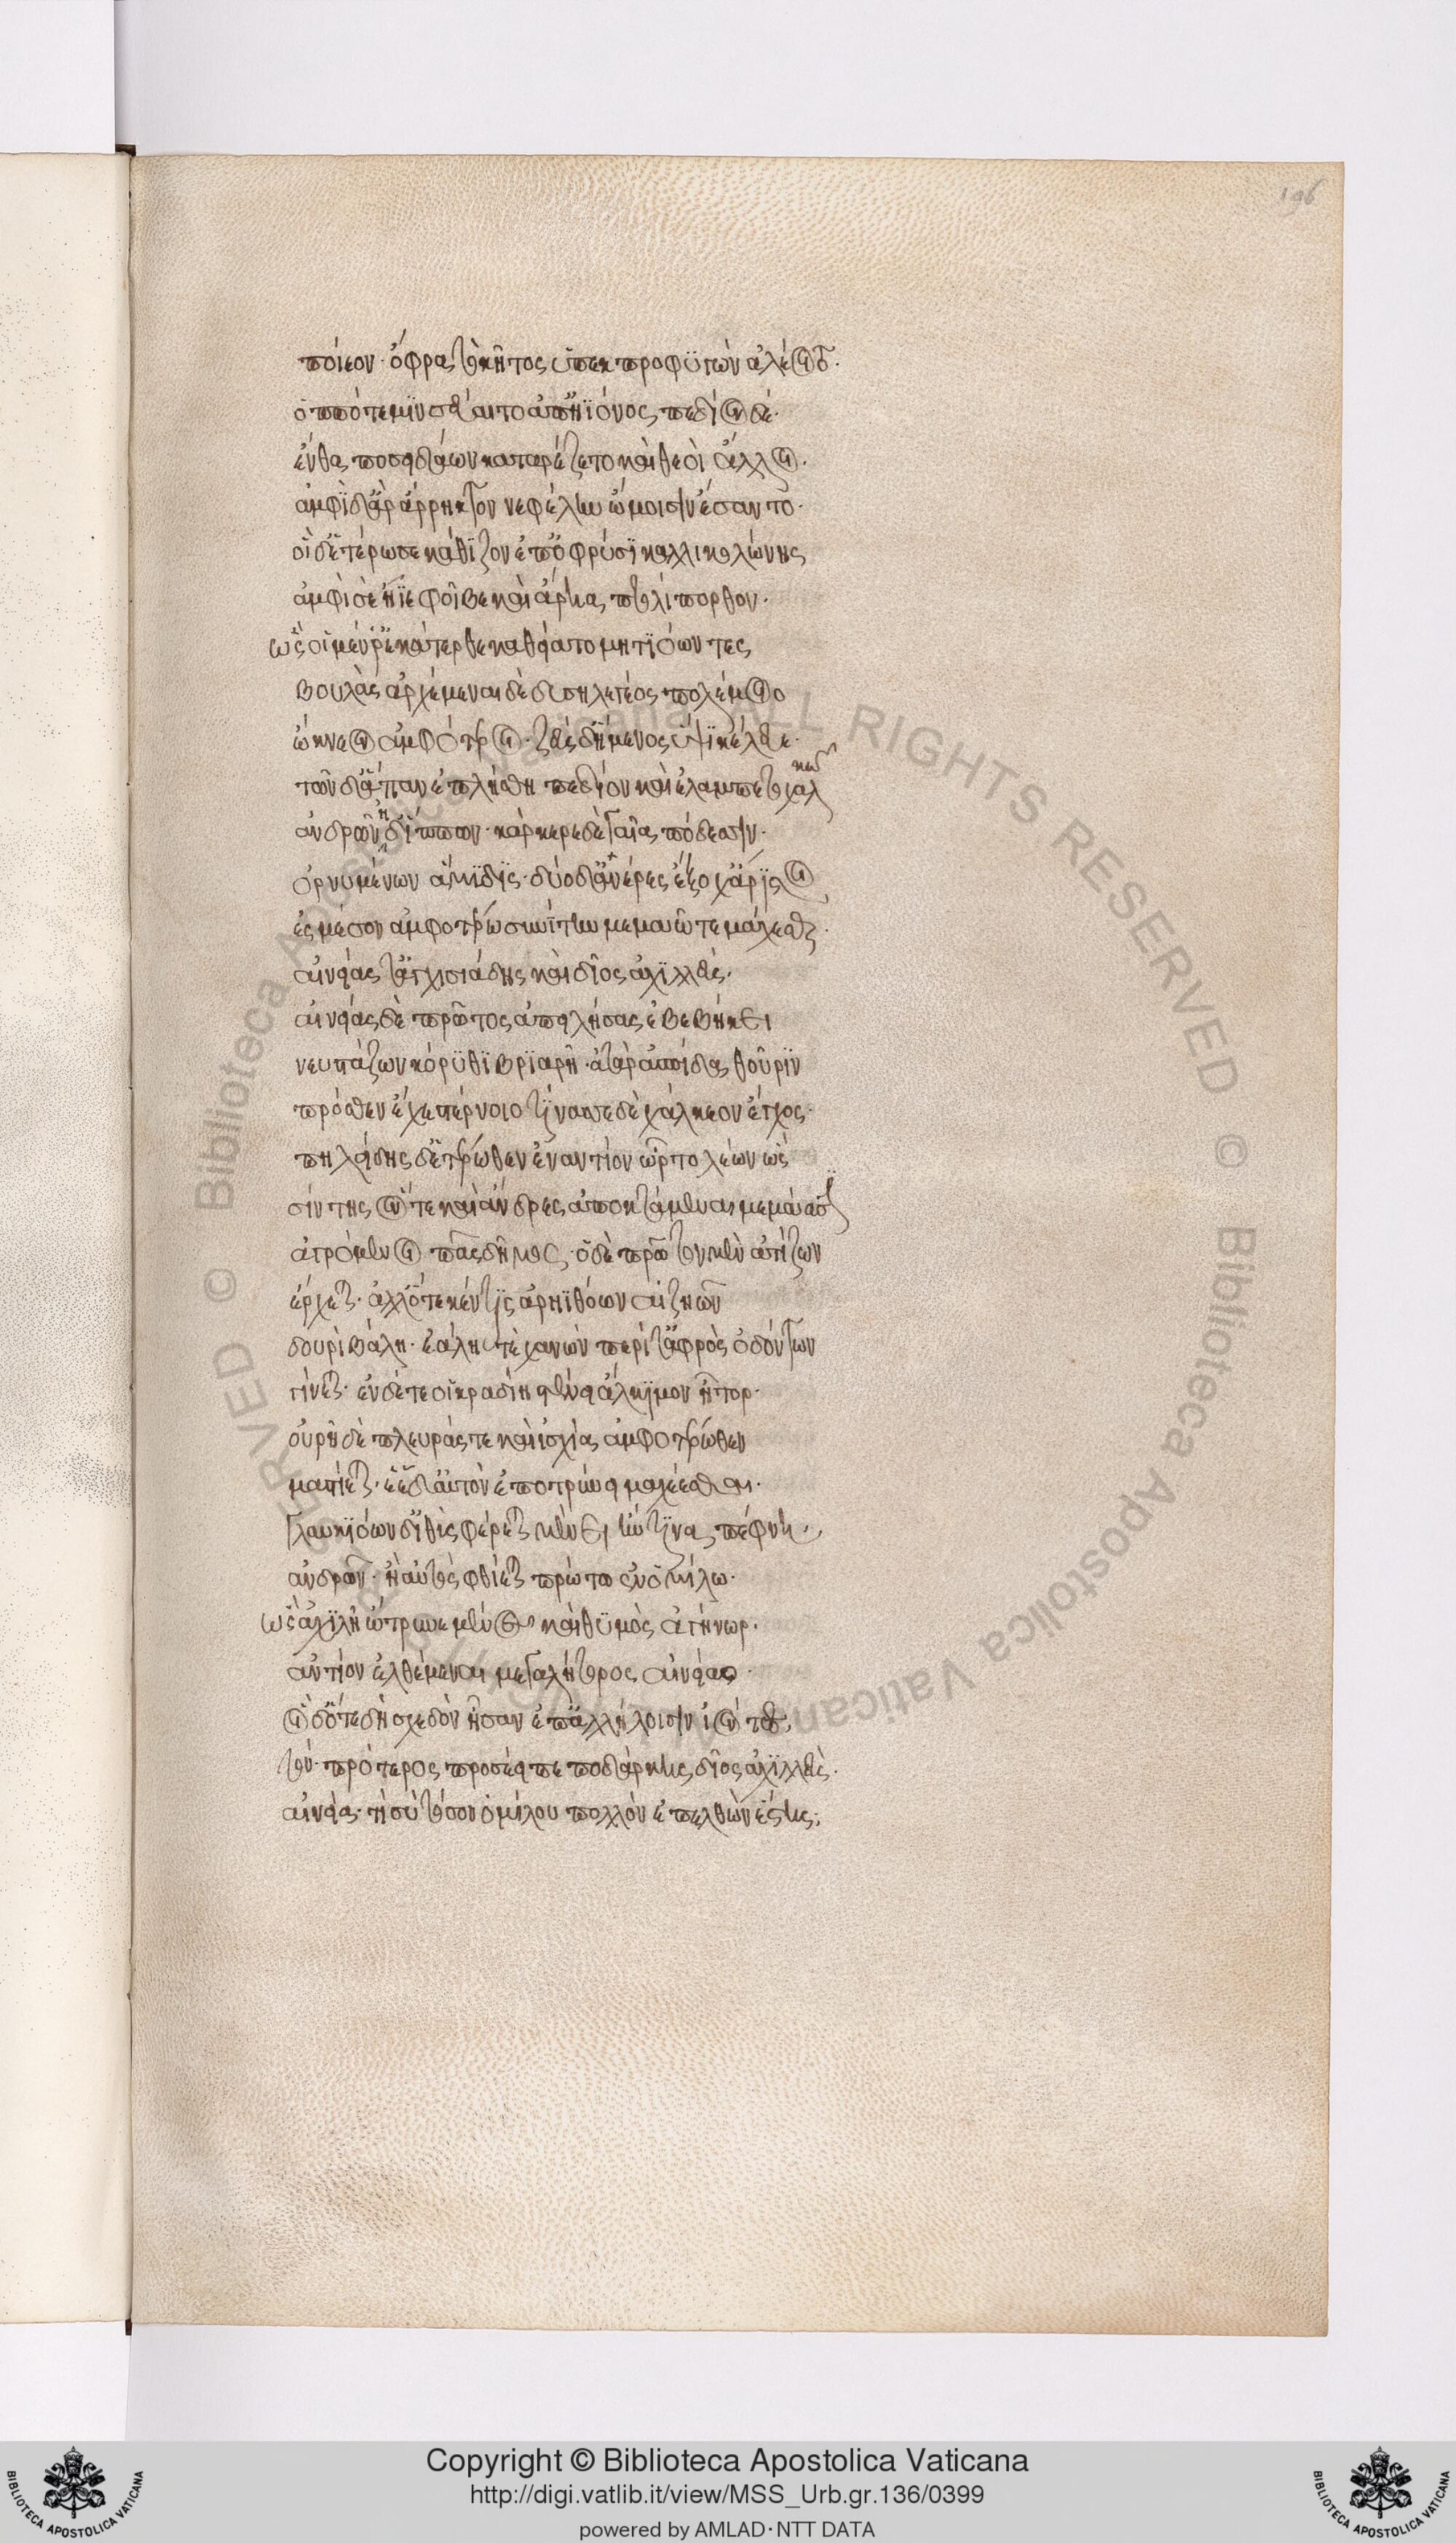 ποίεον· ὄφρα τὸ κῆτος ὑπεκ προφυγὼν ἀλέοιτο·
ὁππότε μιν σεύαιτο ἀπ' ἠϊόνος πεδίον δέ·
ἔνθα ποσειδάων κατ' ἀρ' ἕζετο καὶ θεοὶ ἄλλοι·
ἀμφὶ δ' ἄρ' ἄρρηκτον νεφέλην ὤμοισιν ἕσαντο·
οἳ δ' ἑτέρωσε κάθιζον ἐπ' ὀφρύσι καλλικολώνης
ἀμφὶ σὲ ἤϊε φοῖβε καὶ ἄρηα πτολίπορθον·
ὣς οἳ μέν ῥ' ἑκάτερθε καθείατο μητιόωντες
βουλὰς ἀρχέμεναι δὲ δυσηλεγέος πολέμοιο
ὤκνεον ἀμφότεροι· ζεὺς δ' ἥμενος ὕψι κέλευε·
τῶν δ' ἅπαν ἐπλήσθη πεδίον καὶ ἐλάμπετο χαλκῶ
ἀνδρῶν ἠδ' ἵππων· κάρκερε δὲ γαῖα πόδεσσιν·
ὀρνυμένων ἄμυδις· δύο δ' ἀνέρες ἔξοχ' ἄριστοι
ἐς μέσον ἀμφοτέρων συνίτην μεμαῶτε μάχεσθαι·
αἰνείας τ' ἀγχισιάδης καὶ δῖος ἀχιλλεύς·
αἰνείας δὲ πρῶτος ἀπειλήσας ἐβεβήκει
νευστάζων κόρυθι βριαρῆ· ἀτὰρ ἀσπίδα θοῦριν
πρόσθεν ἔχε στέρνοιο τίνασσε δὲ χάλκεον ἔγχος·
πηλείδης δ' ἑτέρωθεν ἐναντίον ὦρτο λέων ὣς
σίντης ὅν τε καὶ ἄνδρες ἀποκτάμεναι μεμάασιν
ἀγρόμενοι πᾶς δῆμος· ὁ δὲ πρῶτον μὲν ἀτίζων
ἔρχεται· ἀλλ' ὅτε κέν τις ἀρηϊθόων αἰζηῶν
δουρὶ βάλη· ἐάλη τὲ χανὼν περί τ' ἀφρὸς ὀδόντων
γίνεται· ἐν δέ τέ οἱ κραδίη στένει ἄλκιμον ἦτορ·
οὐρῆ δὲ πλευράς τε καὶ ἰσχία ἀμφοτέρωθεν
μαστίεται· ἑὲ δ' αὐτὸν ἐποτρύνει μαχέσασθαι·
γλαυκιόων δ' ἰθὺς φέρεται μένει ἤν τινα πέφνη·
ἀνδρῶν· ἢ αὐτὸς φθίεται πρώτω ἐν ὁμίλω·
ὣς ἀχιλῆ' ὤτρυνε μένος καὶ θυμὸς ἀγήνωρ·
ἀντίον ἐλθέμεναι μεγαλήτορος αἰνείαο·
οἳ δ' ὅτε δὴ σχεδὸν ἦσαν ἐπ' ἀλλήλοισιν ἰόντες·
τὸν πρότερος προσέειπε ποδάρκης δῖος ἀχιλλεύς·
αἰνεία· τί σὺ τόσον ὁμίλου πολλὸν ἐπελθὼν ἔστης;
196
Copyright © Biblioteca Apostolica Vaticana
http://digi.vatlib.it/view/MSS_Urb.gr.136/0399
powered by AMLAD·NTT DATA